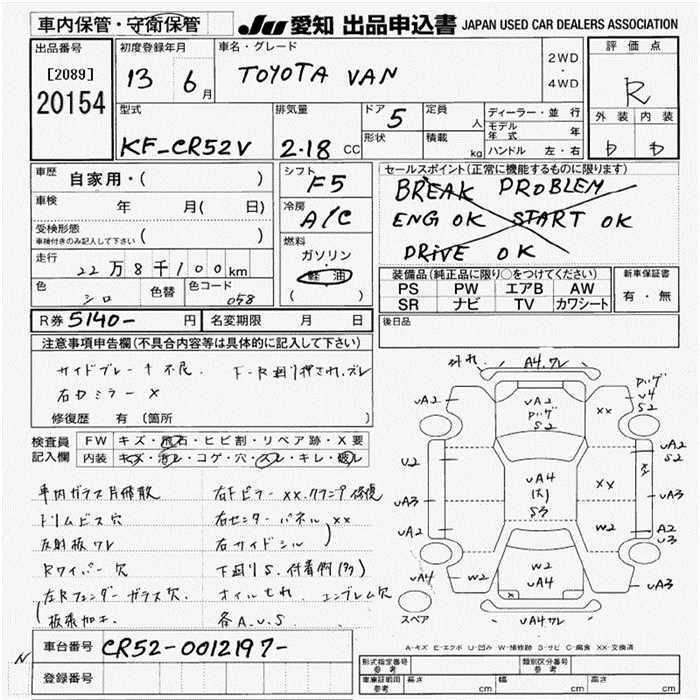 車内保管・守衛保管
JU 愛知 出品申込書 JAPAN USED CAR DEALERS ASSOCIATION
出品番号 初度登録年月 車名・グレード 評価点
[2089]
20154
13 6月
TOYOTA VAN
2WD
・
4WD
R
型式 排気量 ドア 定員 ディーラー・並行 外装 内装
KF-CR52V 2.18 CC 5 人
モデル年式 年
形状 積載 kg ハンドル 左・右
車歴 自家用・( )
シフト F5
セールスポイント(正常に機能するものに限ります)
BREAK PROBLEM
ENG OK START OK
DRIVE OK
車検 年 月( 日)
冷房 A/C
受検形態
車検付きのみ記入して下さい ( )
燃料
ガソリン
軽油
( )
走行 22万8千100km
色 シロ 色替 色コード 058
装備品(純正品に限り○をつけてください)
PS PW エアB AW
SR ナビ TV カワシート
新車保証書
有・無
R券 5140- 円 名変期限 月 日
後日品
注意事項申告欄(不具合内容等は具体的に記入して下さい)
サイドブレーキ不良
右ミラー X
修復歴 有(箇所 )
検査員
記入欄
FW キズ・飛石・ヒビ割・リペア跡・X要
内装 キズ・汚レ・コゲ・穴・スレ・キレ・破レ
車内ガラス片散
右Fピラーxx.クランプ修復
トリムビス穴
右センターパネルxx
反射板ワレ
右サイドシル
Rワイパー欠
下廻りS.
左Rフェンダーガラス欠
オイルもれ エンブレム欠
板張加工
各A.U.S
外れ A4.ワレ
UA2 UA2 S2 XX U4 S2
U2 UA2 S2
UA3 UA4 S3 XX UA3
UA2 W2 A2 U3
UA4 W2 W2 UA4 UA3
スペア
UA4ワレ
A-キズ E-エクボ U-凹み W-補修跡 S-サビ C-腐食 XX-交換済
車台番号 CR52-0012197-
登録番号
形式指定番号 参考 類別区分番号 参考
車庫証明用 参考 長さ cm 幅 cm 高さ cm